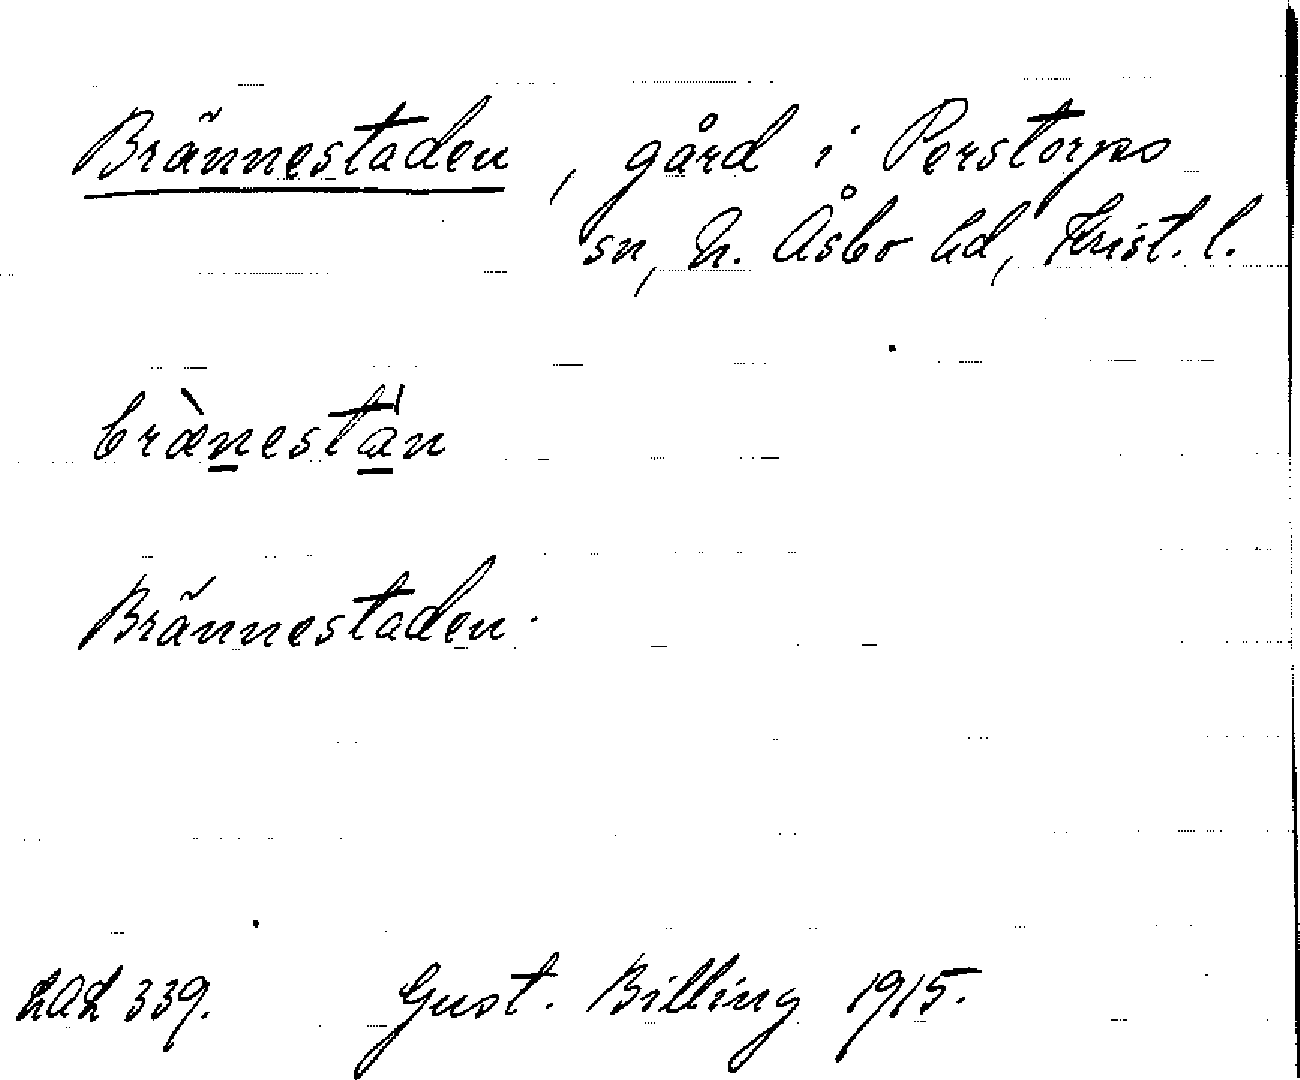 Brännestaden, gård i Perstorps
sn, N. Åsbo hd, Krist. l.
brànestán
Brännestaden.
LAL 339. Gust. Billing 1915.